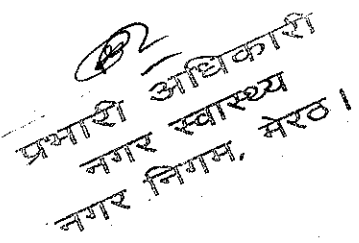 प्रभारी अधिकारी
नगर स्वास्थ्य
नगर निगम, मेरठ।